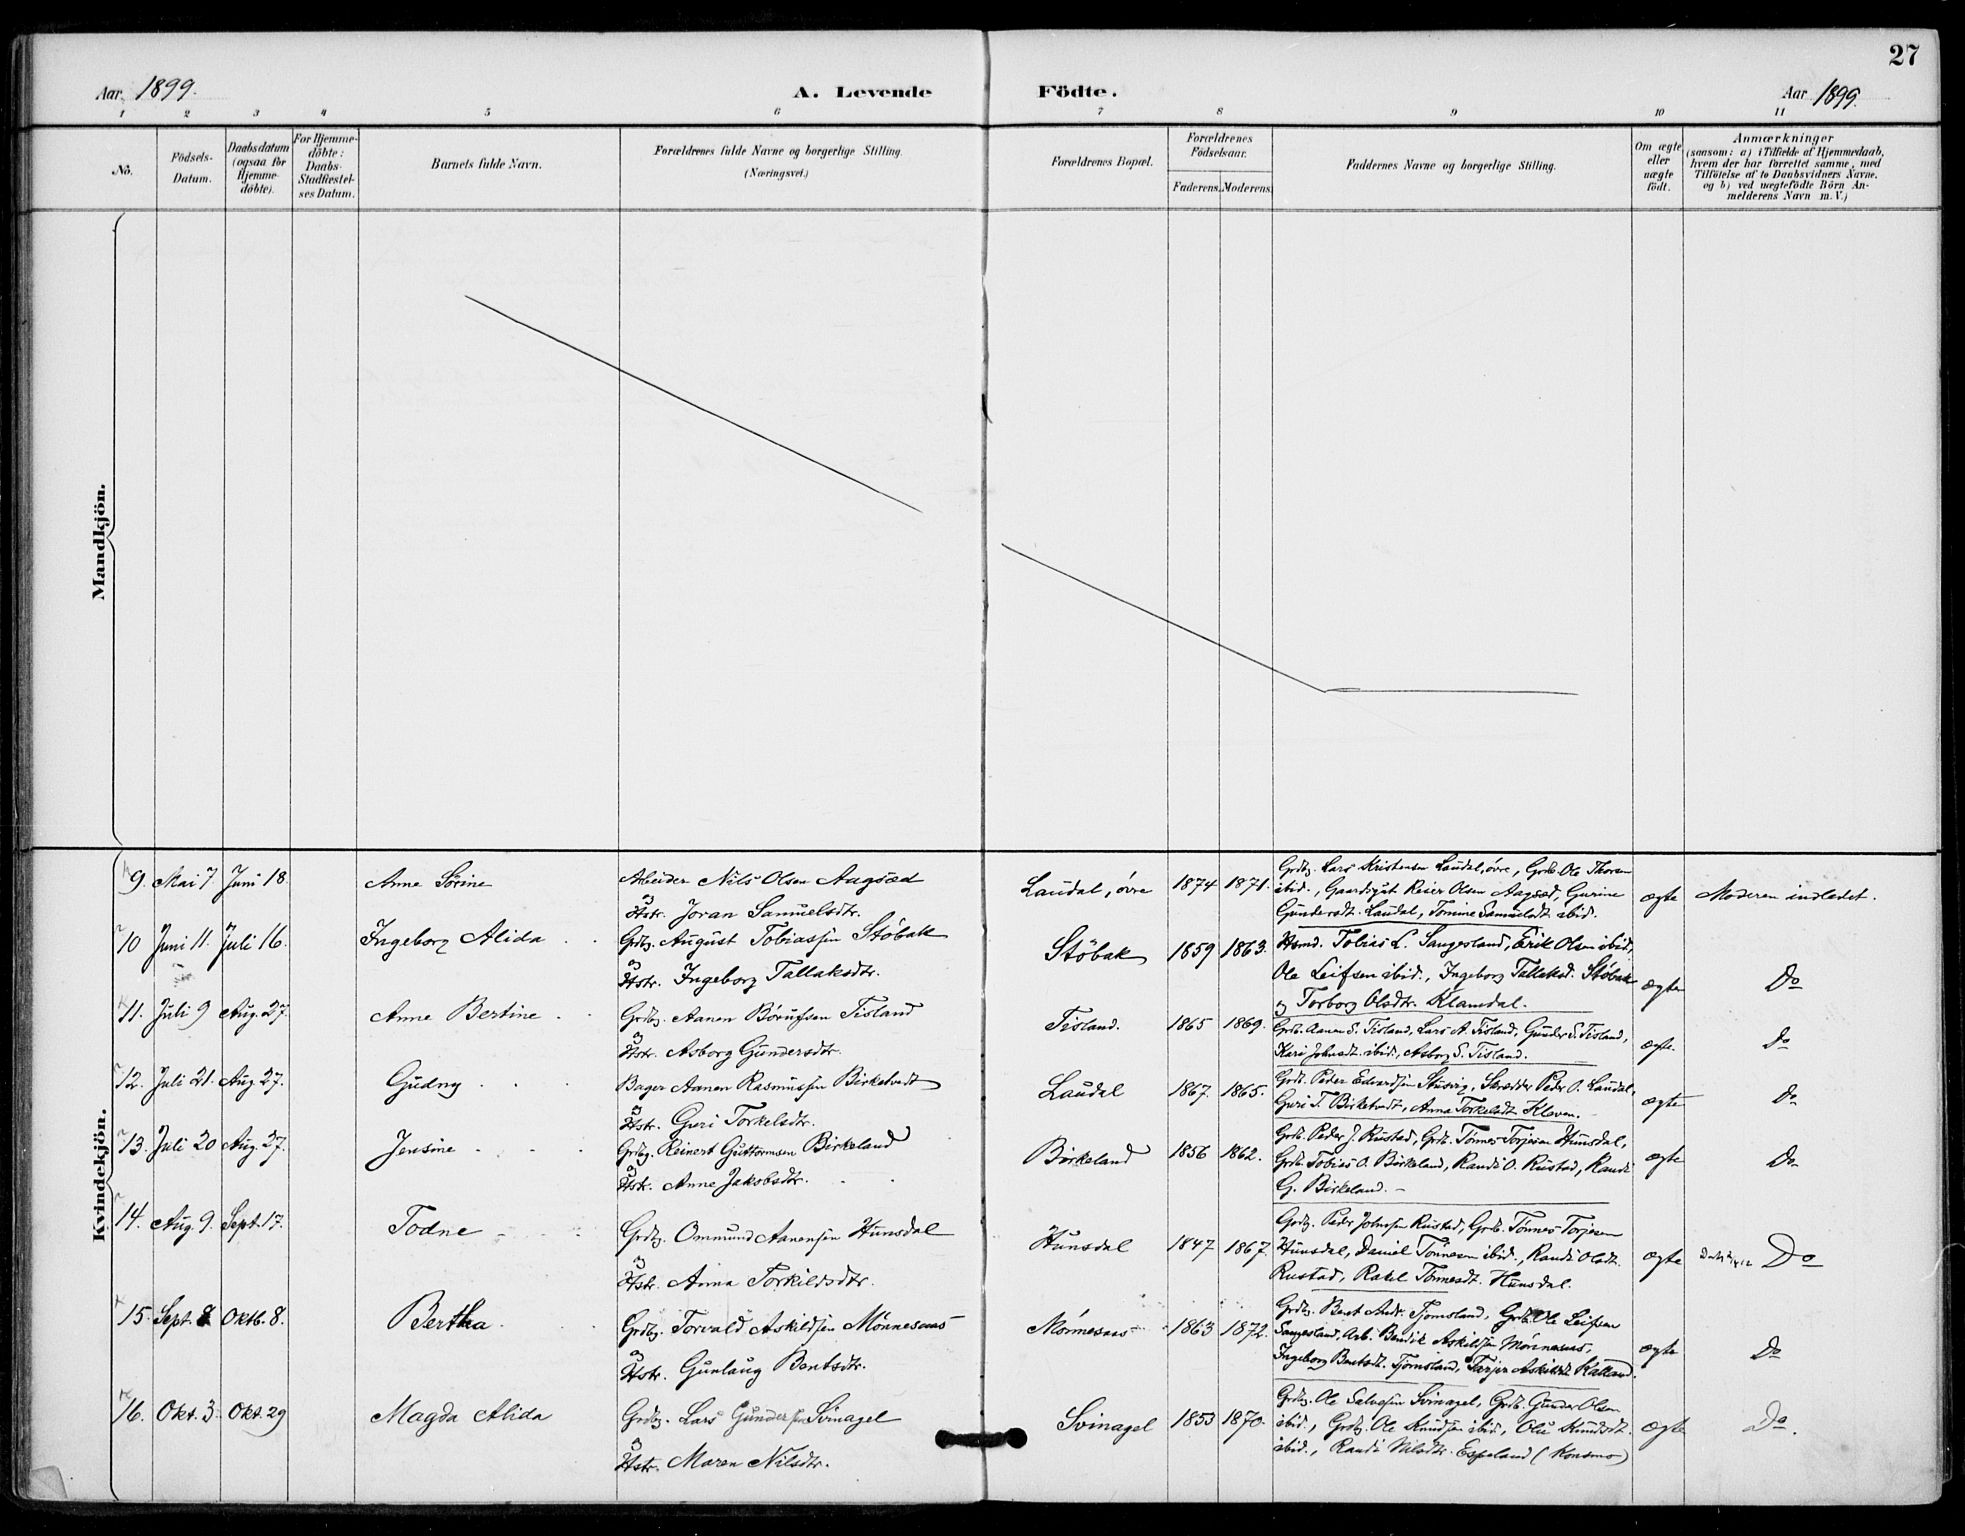 27
Aar 1899. A. Levende Födte. Aar 1899.
1 2 3 4 5 6 7 8 9 10 11
No.
Födsels-
Datum.
Daabsdatum
(ogsaa for
Hjemme-
döbte).
For Hjemme-
döbte:
Daabs-
Stadfæstel-
ses Datum.
Barnets fulde Navn.
Forældrenes fulde Navne og borgerlige Stilling.
(Næringsvei.)
Forældrenes Bopæl.
Forældrenes
Födselsaar.
Faderens. Moderens.
Faddernes Navne og borgerlige Stilling.
Om ægte
eller
uægte
födt.
Anmærkninger
(saasom: a) i Tilfælde af Hjemmedaab,
hvem der har forrettet samme, med
Tilföielse af to Daabsvidners Navne,
og b) ved uægtefödte Börn An-
melderens Navn m. V.)
Mandkjön.
Kvindekjön.
9. Mai 7 Juni 18. Anne Sörine
Arbeider Nils Olsen Aagsæd
og
Hstr. Joran Samuelsdtr.
Laudal, övre 1874 1871.
Grdbr. Lars Kristensen Laudal, övre, Grdb. Ole Thorsen
ibid., Gaardsgut Reier Olsen Aagsæd, Gurine
Gundersdt. Laudal, Tomine Samuelsdt. ibid.
ægte Moderen indledet.
10 Juni 11. Juli 16. Ingeborg Alida
Grdbr. August Tobiassen Stöbak
og
Hstr. Ingeborg Tallaksdtr.
Stöbak 1859 1863.
Hsmd. Tobias L. Sangesland, Erik Olsen ibid,
Ole Leifsen ibid., Ingeborg Tallaksd. Stöbak
og Torborg Olsdtr. Klamdal.
ægte Do
11. Juli 9 Aug. 27. Anne Bertine
Grdbr. Aanen Börufsen Tisland
og
Hstr. Asborg Gundersdtr.
Tisland. 1865 1869.
Grdb. Aanen S. Tisland, Lars A. Tisland, Gunder S. Tisland,
Kari Johnsdt. ibid., Asborg S. Tisland.
ægte. Do
12. Juli 21. Aug. 27. Gudny
Bager Aanen Rasmussen Birketvedt
og
Hstr. Guri Torkelsdtr.
Laudal 1867. 1865.
Grdb. Peder Edvardsen Stusvig, Skrædder Peder O. Laudal,
Guri T. Birketvedt, Anna Torkelsdt. Kleven.
ægte Do
13. Juli 20 Aug. 27. Jensine
Grdbr. Reinert Guttormsen Birkeland
og
Hstr. Anne Jakobsdtr.
Birkeland 1856 1862.
Grdb. Peder J. Rustad, Grdb. Tönnes Torjesen Hunsdal,
Grdb. Tobias O. Birkeland, Randi O. Rustad, Randi
G. Birkeland.
ægte Do
14. Aug. 9. Sept. 17. Todne
Grdbr. Ommund Aanensen Hunsdal
og
Hstr. Anna Torkildsdtr.
Hunsdal 1847 1867.
Grdbr. Peder Johnsen Rustad, Grdb. Tönnes Torjesen
Hunsdal, Daniel Tönnesen ibid., Randi Olsdt.
Rustad, Rakel Tönnesdt. Hunsdal.
ægte Do
15. Sept. 8 Oktb. 8. Bertha
Grdbr. Torvald Askildsen Mönnesaas
og
Hstr. Gunlaug Bentsdtr.
Mönnesaas 1863 1872.
Grdbr. Bent Andr. Tjomsland, Grdb. Ole Leifsen
Sangesland, Arb. Bendik Askildsen Mönnesaas,
Ingeborg Bentsdt. Tjomsland, Tarjer Askildsdt. Kalland.
ægte Do
16. Okt. 3 Okt. 29 Magda Alida
Grdbr. Lars Gundersen Svinagel
og
Hstr. Maren Nilsdtr.
Svinagel 1853 1870.
Grdbr. Ole Salvesen Svinagel, Grdb. Gunder Olsen
ibid., Grdbr. Ole Knudsen ibid., Olu Knudsdt.
ibid., Randi Nilsdtr. Espeland (Konsmo)
ægte Do.